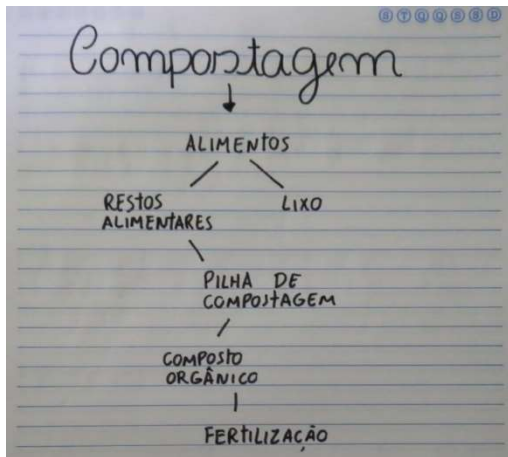 S T Q Q S S D
Compostagem
ALIMENTOS
RESTOS
ALIMENTARES
LIXO
PILHA DE
COMPOSTAGEM
COMPOSTO
ORGÂNICO
FERTILIZAÇÃO